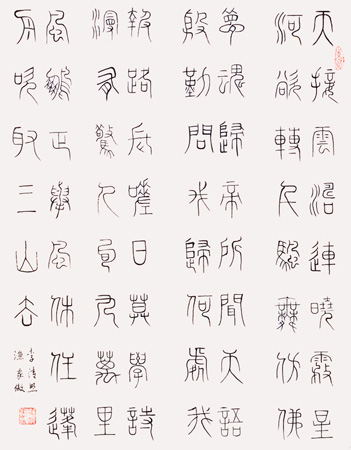 天接雲濤連曉霧星
河欲轉千帆舞仿佛
夢魂歸帝所聞天語
殷勤問我歸何處我
報路長嗟日莫學詩
漫有驚人句九萬里
風鵬正舉風休住蓬
舟吹取三山去
李清照
漁家傲